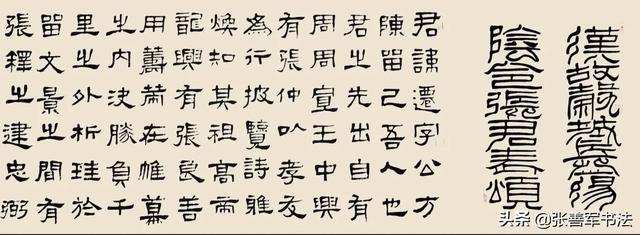 漢故穀城長蕩
陰令張君表頌
君諱遷字公方
陳留己吾人也
君之先出自有
周周宣王中興
有張仲以孝友
為行披覽詩雅
煥知其祖高帝
龍興有張良善
用籌策在帷幕
之內決勝負千
里之外析珪於
留文景之間有
張釋之建忠弼
头条 @张善军书法